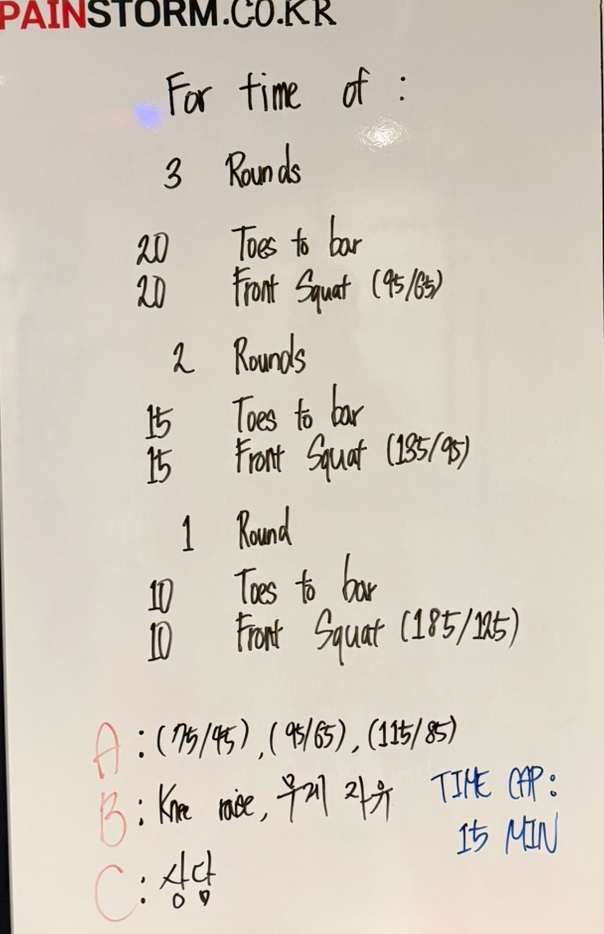 PAINSTORM.CO.KR
For time of :
3 Rounds
20 Toes to bar
20 Front Squat (95/65)
2 Rounds
15 Toes to bar
15 Front Squat (135/95)
1 Round
10 Toes to bar
10 Front Squat (185/125)
A : (75/45), (95/65), (115/85)
B : Knee raise, 무게 자유
TIME CAP:
15 MIN
C : 상당